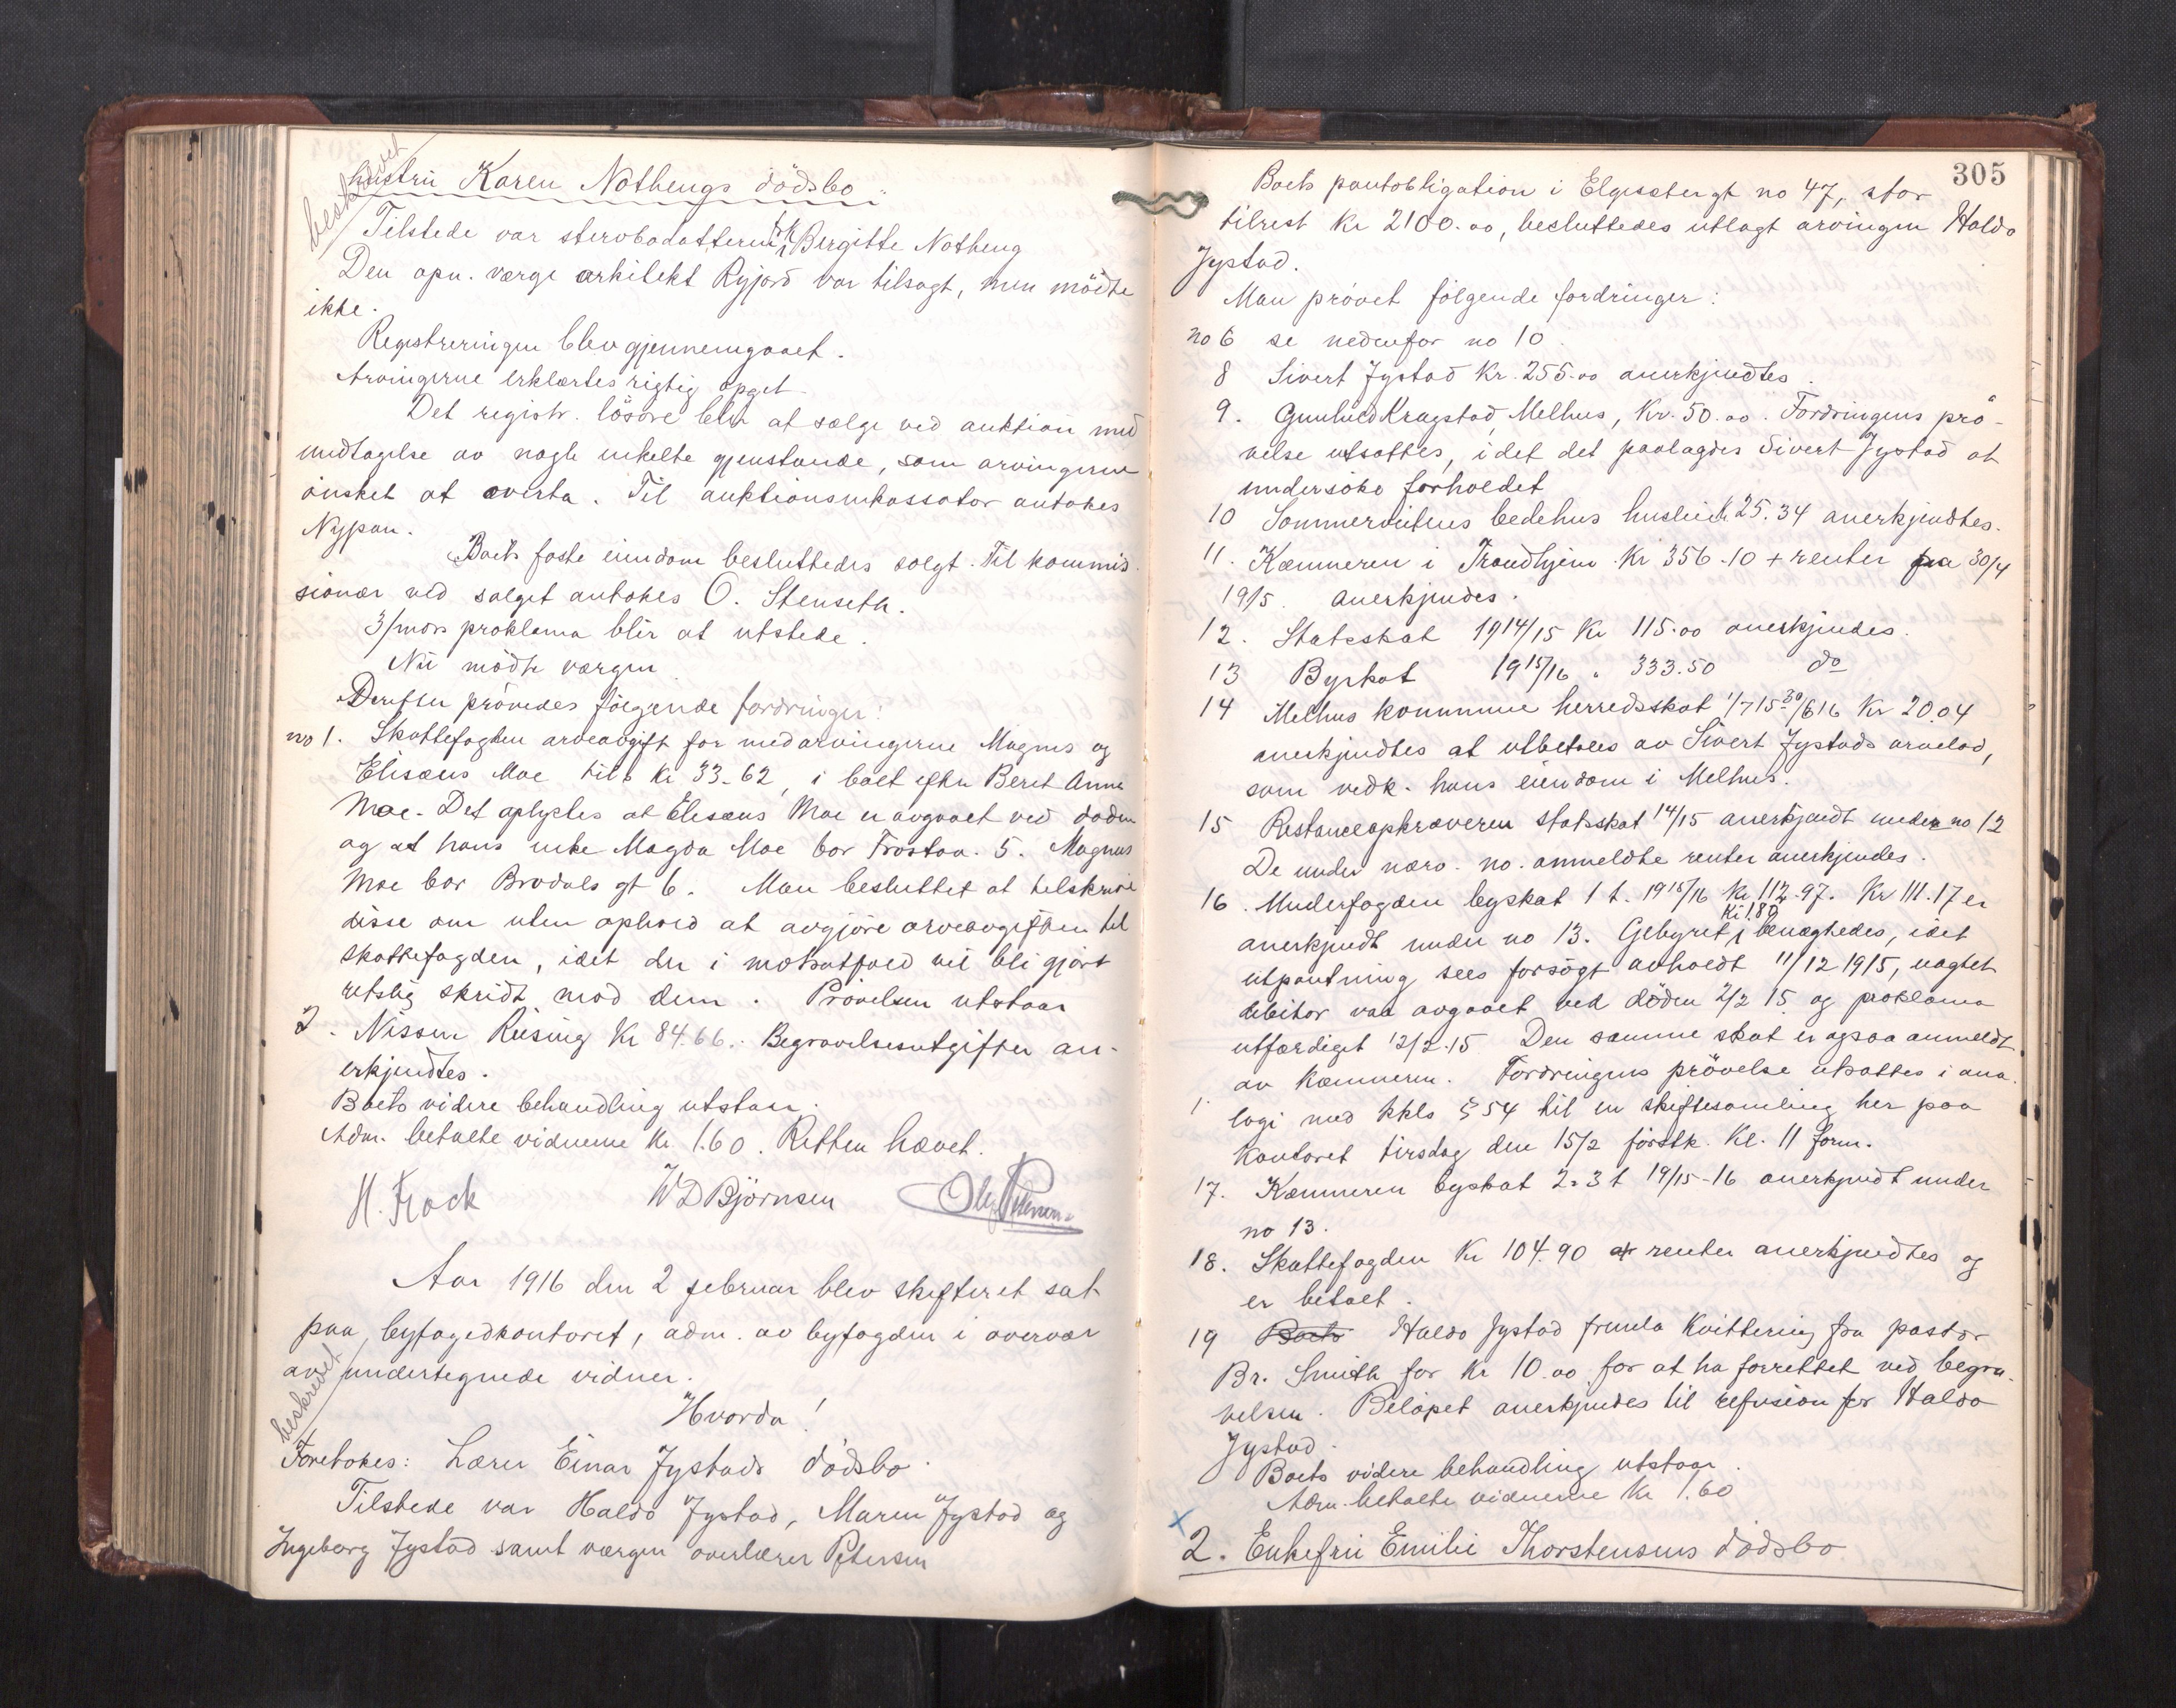 beskrevet
hustru Karen Nothengs dödsbo
Tilstede var stervbodatteren frk Bergitte Notheng
Den opn. værge arkitekt Ryjord var tilsagt, men mödte
ikke.
Registreringen blev gjennemgaaet.
Arvingerne erklærtes rigtig opget.
Det registr. lösöre blir at sælge ved auktion med
undtagelse av nogle enkelte gjenstande, som arvingerne
önsket at overta. Til auktionsinkassator antokes
Nypan.
Boets faste eiendom besluttedes solgt. Til kommis-
sionær ved salget antokes O. Stenseth.
3/mdrs proklama blir at utstede.
Nu mödte værgen
Derefter prövedes fölgende fordringer:
no 1. Skattefogden arveavgift for medarvingerne Magnus og
Elisæus Moe tils Kr 33.62, i boet efter Beret Anna
Moe. Det oplystes at Elisæus Moe er avgaaet ved döden
og at hans enke Magda Moe bor Frostav. 5. Magnus
Moe bor Brodals gt 6. Man besluttet at tilskrive
disse om uten ophold at avgjöre arveavgiften til
skattefogden, idet der i motsatfald vil bli gjort
retslig skridt mod dem. Prövelsen utstaar
2. Nissen Riising Kr 84.66. Begravelsesutgifter an-
erkjendtes.
Boets videre behandling utstaar.
Adm. betalte vidnerne Kr. 1.60. Retten hævet.
H. Frock W D Björnsen
Aar 1916 den 2 februar blev skifteret sat
paa byfogedkontoret, adm. av byfogden i overvær
av undertegnede vidner.
beskrevet
Hvorda!
Foretokes: Lærer Einar Jystads dödsbo.
Tilstede var Haldo Jystad, Maren Jystad og
Ingeborg Jystad samt værgen overlærer Petersen
305
Boets pantobligation i Elgesetergt no 47, stor
tilrest Kr 2100.00, besluttedes utlagt arvingen Haldo
Jystad.
Man prövet fölgende fordringer:
no 6 se nedenfor no 10
8 Sivert Jystad Kr. 255.00 anerkjendtes.
9. Gunhild Kragstad, Melhus, Kr. 50.00. Fordringens prö-
velse utsattes, idet det paalagdes Sivert Jystad at
undersöke forholdet
10 Sommerveitens bedehus husleie Kr 25.34 anerkjendtes.
11. Kæmneren i Trondhjem Kr 356.10 + renter fra 30/4
1915. anerkjendes.
12. Statsskat 1914/15 Kr 115.00 anerkjendes.
13 Byskat 1915/16 " 333.50 do
14 Melhus kommune herredsskat 1/7 15-30/6 16 Kr 20.04
anerkjendtes at utbetales av Sivert Jystads arvelod,
som vedk. hans eiendom i Melhus.
15 Restanceopkræveren statsskat 14/15 anerkjendt under no 12
De under nærv. no. anmeldte renter anerkjendes.
16. Underfogden byskat 1 t. 1915/16 Kr 112.97. Kr 111.17 er
anerkjendt under no 13. Gebyret Kr 1.80 benægtedes, idet
utpantning sees forsögt avholdt 11/12 1915, uagtet
debitor var avgaaet ved döden 2/2 15 og proklama
utfærdiget 12/2.15 Den samme skat er ogsaa anmeldt
av kæmneren. Fordringens prövelse utsattes i ana-
logi med kkls § 54 til en skiftesamling her paa
Kontoret tirsdag den 15/2 förstk. Kl. 11 form.
17. Kæmneren byskat 2 & 3 t 19/15-16 anerkjendt under
no 13.
18. Skattefogden Kr 104.90 + renter anerkjendtes og
er betalt.
19 Boets Haldo Jystad fremla kvittering fra pastor
Br. Smith for Kr 10.00 for at ha forrettet ved begra-
velsen. Belöpet anerkjendes til refusion for Haldo
Jystad.
Boets videre behandling utstaar.
Adm. betalte vidnerne Kr 1.60
2. Enkefru Emilie Thorstensens dödsbo